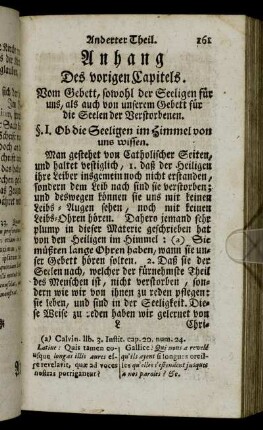 Anderter Theil. 161
Anhang
Des vorigen Capitels.
Vom Gebett, sowohl der Seeligen für
uns, als auch von unserem Gebett für
die Seelen der Verstorbenen.
§. I. Ob die Seeligen im Himmel von
uns wissen.
Man gestehet von Catholischer Seiten,
und haltet vestiglich, 1. daß der Heiligen
ihre Leiber insgemein noch nicht erstanden,
sondern dem Leib nach sind sie verstorben;
und deswegen können sie uns mit keinen
Leibs-Augen sehen, noch mit keinen
Leibs-Ohren hören. Dahero jemand sehr
plump in dieser Materie geschrieben hat
von den Heiligen im Himmel : (a) Sie
müßten lange Ohren haben, wann sie un-
ser Gebett hören solten. 2. Daß sie der
Seelen nach, welcher der fürnehmste Theil
des Menschen ist, nicht verstorben, son-
dern wie wir von ihnen zu reden pflegen,
sie leben, und sind in der Seeligkeit. Die-
se Weise zu reden haben wir gelernet von
L Chri-
(a) Calvin. lib. 3. Instit. cap. 20. num. 24.
Latine : Quis tamen eo-
usque longas illis aures es-
se revelavit, quæ ad voces
nostras porrigantur ?
Gallice : Qui nous a revelé
qu'ils ayent si longues oreil-
les qu'elles s'estendent jusques
a nos paroles ? &c.